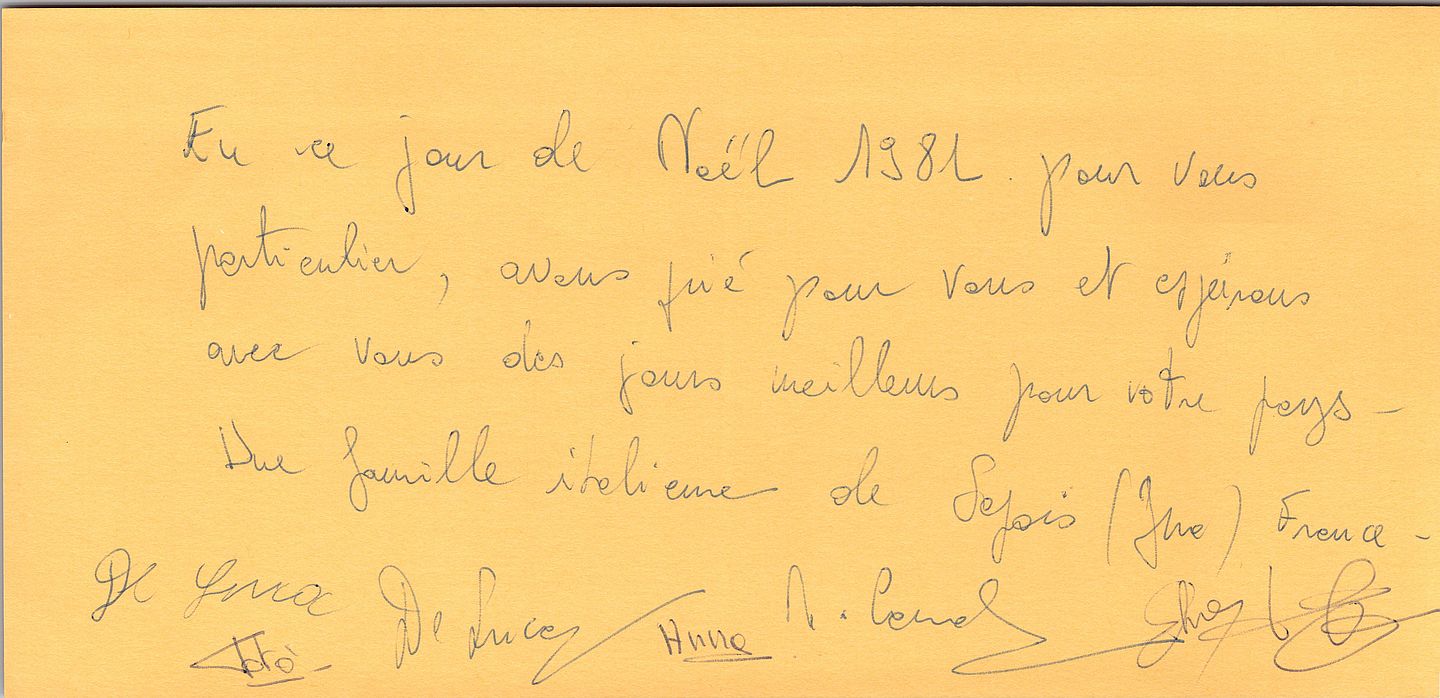 En ce jour de Noël 1981. pour vous
particulier, avons prié pour vous et espérons
avec vous des jours meilleurs pour votre pays -
Une famille italienne de (Jura) France -
De Luca De Luca
Totò Anna